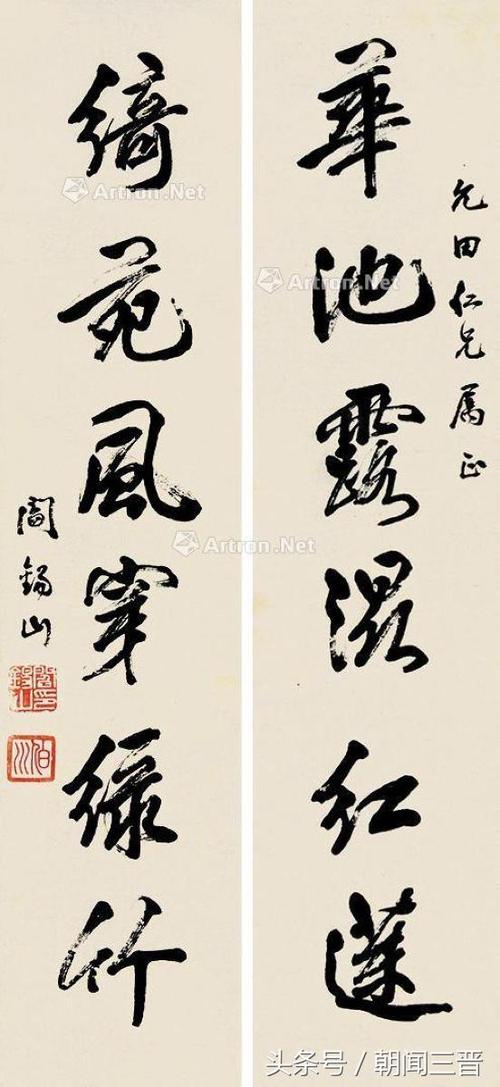 允田仁兄属正
華池露濕紅蓮
綺苑風穿綠竹
閻錫山
閻錫山印
伯川
Artron.Net
Artron.Net
Artron.Net
Artron.Net
头条号 / 朝闻三晋